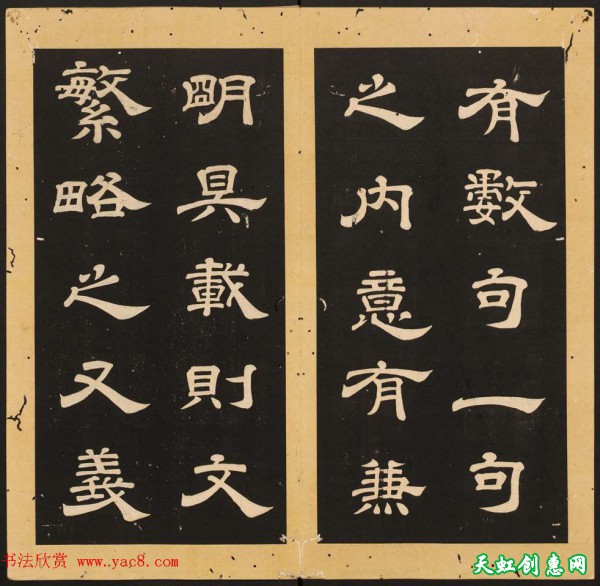 有數句一句
之内意有兼
朙具載則文
繁略之又義
书法欣赏 www.yac8.com
天虹创意网